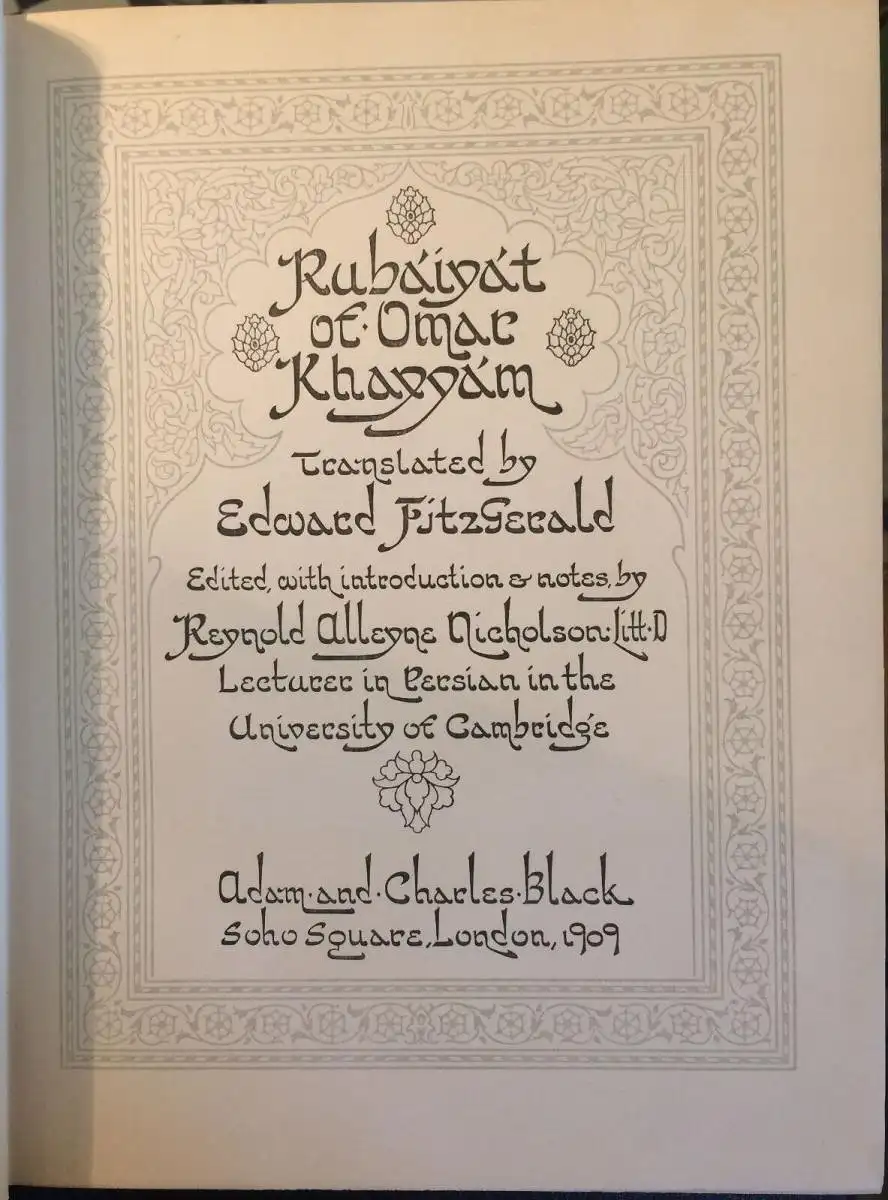 Rubáiyát
of·Omar
Khayyám
Translated by
Edward FitzGerald
Edited, with introduction & notes, by
Reynold Alleyne Nicholson·Litt·D
Lecturer in Persian in the
University of Cambridge
Adam·and·Charles·Black
Soho Square, London, 1909